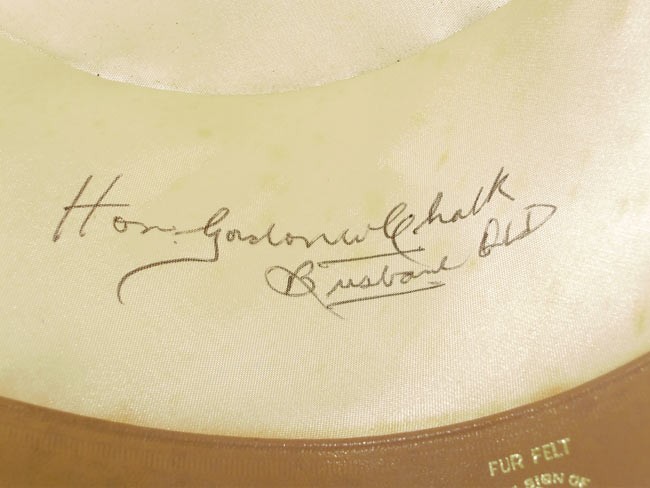 Hon. Gordon W Chalk
Brisbane QLD
FUR FELT
SIGN OF